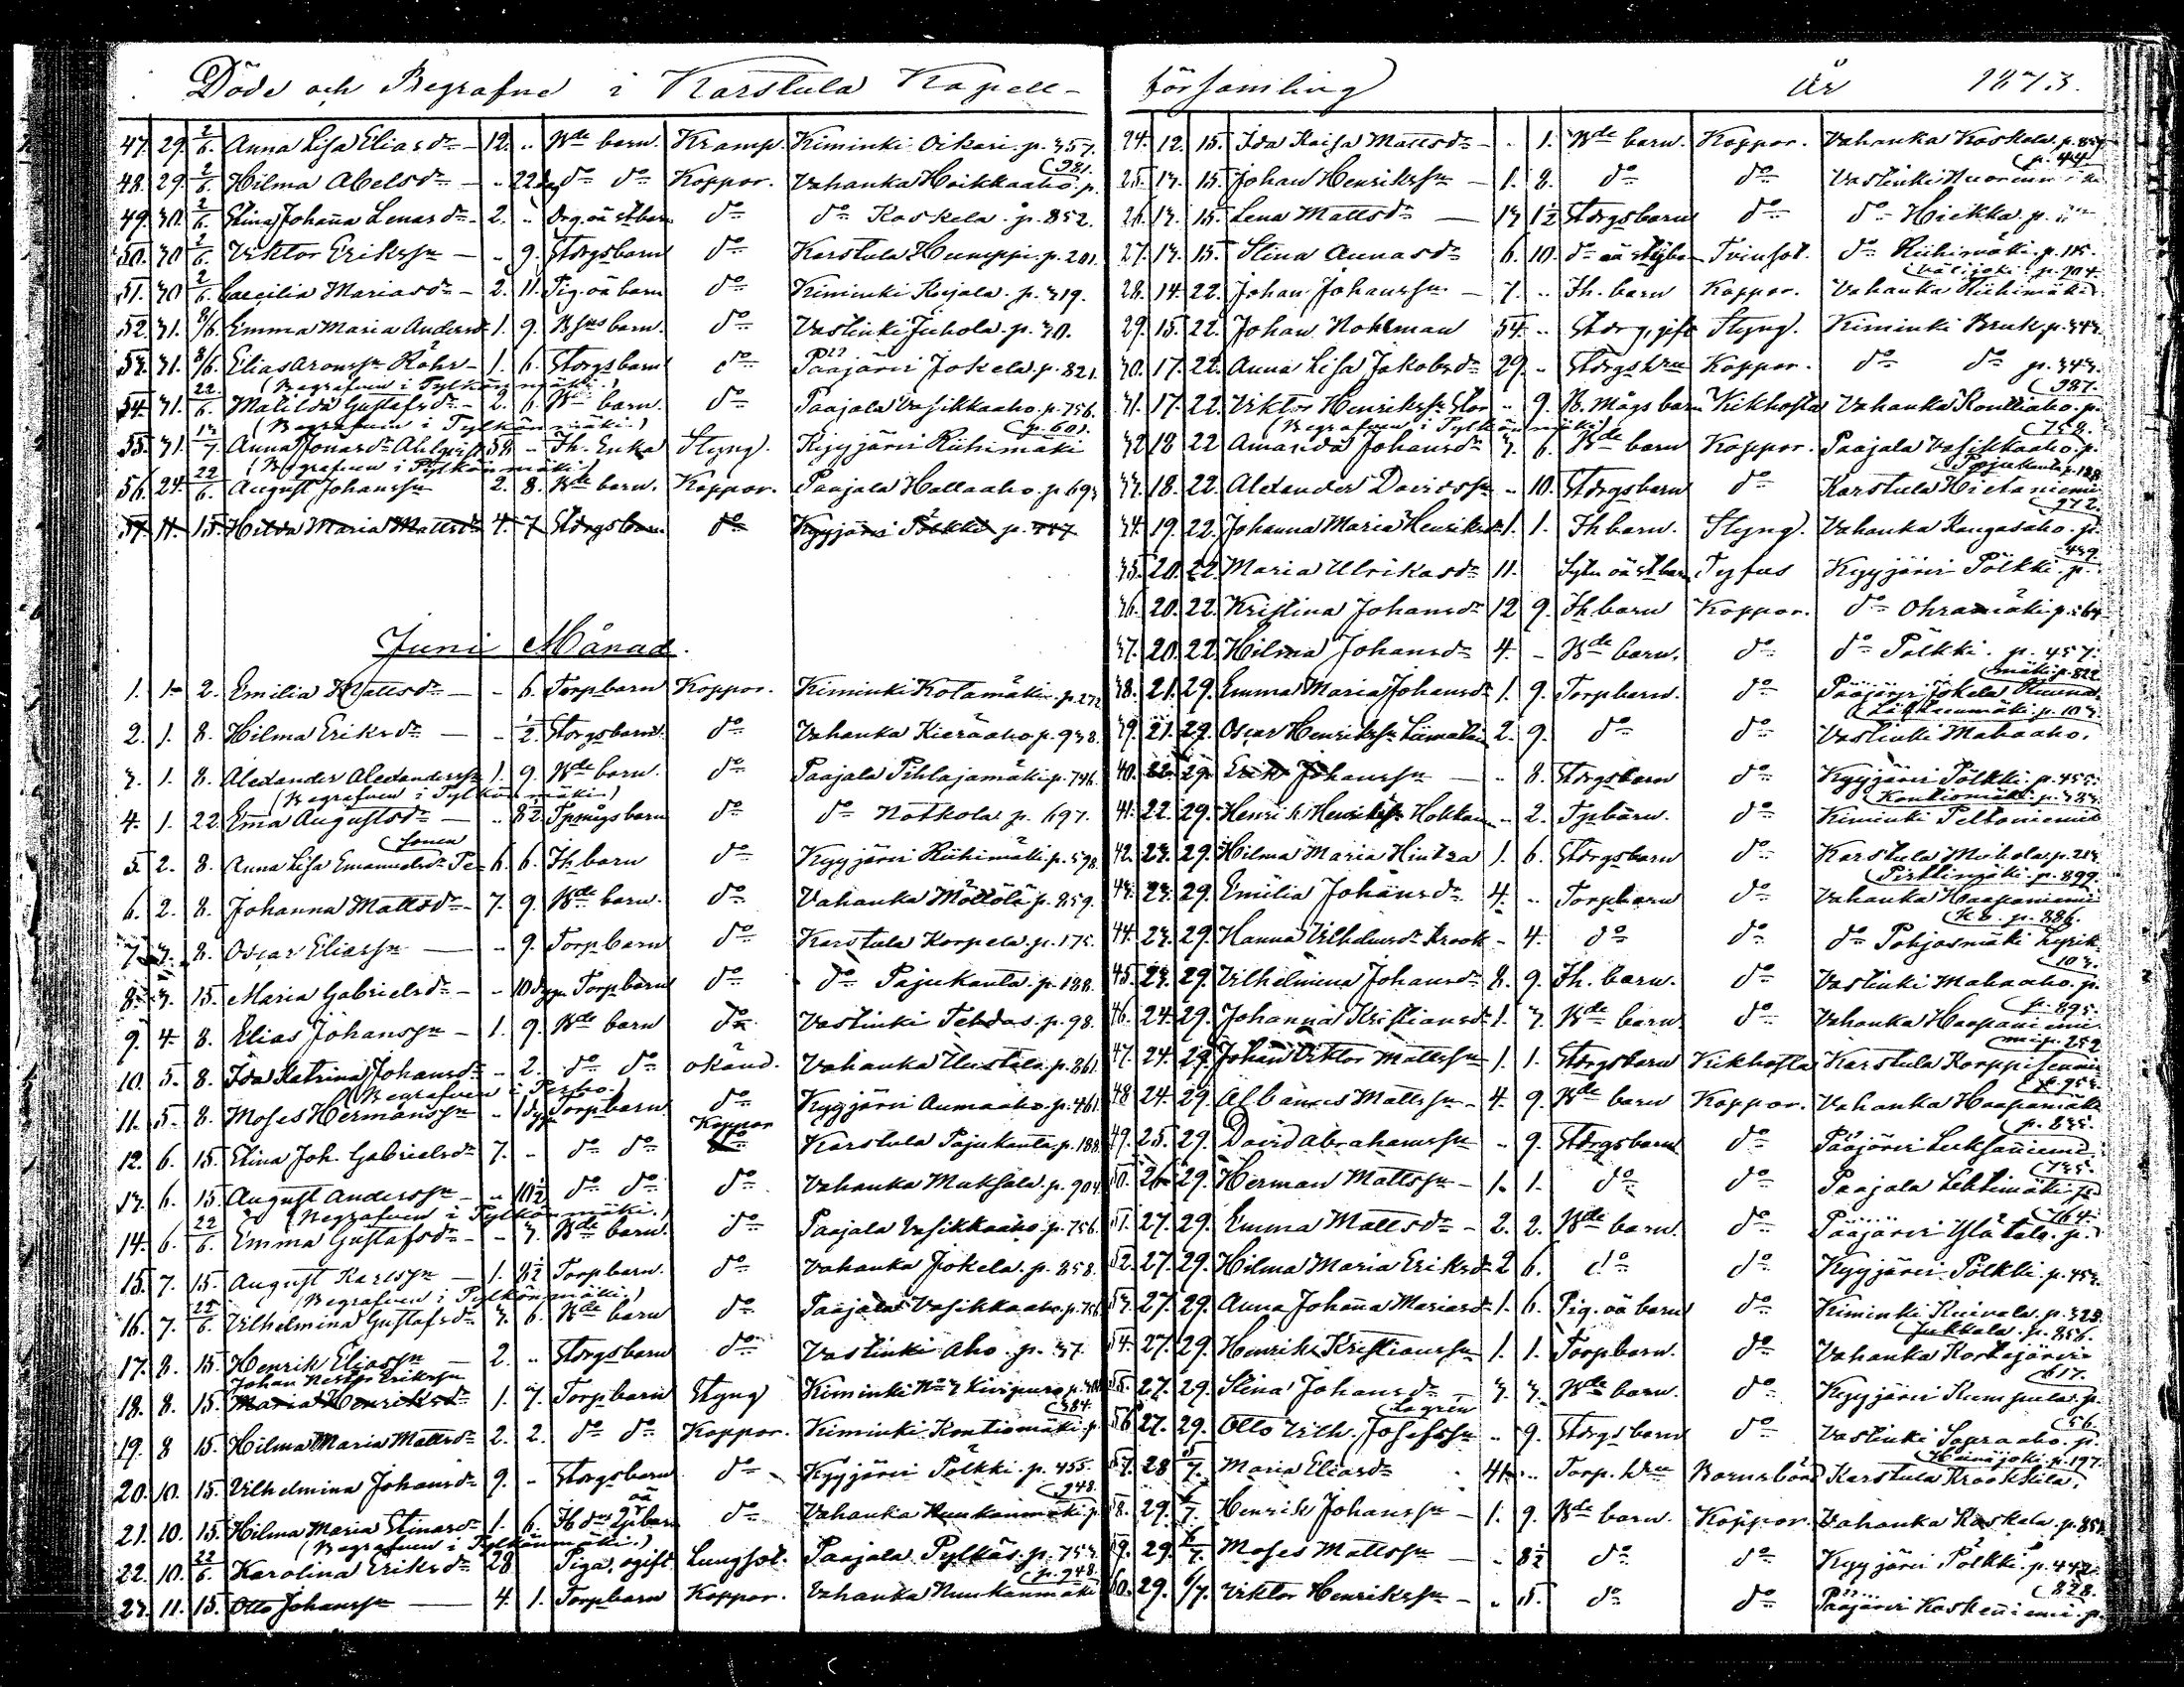 Döde och Begrafne i Karstula Kapell- församling År 1873.
47. 29. 2/6. Anna Lisa Eliasdr - 12. .. Bde barn. Kramp. Kiminki Oikari. p. 357.
48. 29. 2/6. Hilma Abelsdr - .. 22 do do Koppor. Vahanka Hoikkaaho. p. 981.
49. 30. 2/6. Stina Johanna Lenasdr - 2. .. do Koskela. p. 852.
50. 30 2/6. Viktor Erikssn - .. 9. Storgsbarn do Karstula Humppi. p. 201.
51. 30 2/6. Caecilia Mariasdr - 2. 11. Pig. oä barn do Kiminki Rojala. p. 319.
52. 31. 8/6. Emma Maria Andersd 1. 9. barn. do Vastinki Juhola. p. 30.
53. 31. 8/6. Elias Aronssn Röhr - 1. 6. Storgsbarn do Pääjärvi Jokela. p. 821.
(Begrafven i Pylkönmäki.)
54. 31. 22/6. Matilda Gustafsdr - 2. 6. Bde barn. do Paajala Vasikkaaho. p. 756.
(Begrafven i Pylkönmäki.)
55. 31. 13/7. Anna Jonasdr Ahlqvist 58 .. Ih. Enka Styng. Kyyjärvi Riihimäki p. 601.
(Begrafven i Pylkönmäki.)
56. 24. 22/6. August Johanssn 2. 8. Bde barn. Koppor. Paajala Hallaaho. p. 693
57. 11. 15. Hilda Maria Mattsdr 4. 7 Storgsbarn do Kyyjärvi Pölkki p. 447
Juni Månad.
1. 1. 2. Emilia Mattsdr - - 6. Torpbarn Koppor. Kiminki Kotamäki. p. 272
2. 1. 8. Hilma Eriksdr - - 1/2. Storgsbarn. do Vahanka Kieräaho p. 938.
3. 1. 8. Alexander Alexanderssn 1. 9. Bde barn. do Paajala Pihlajamäki. p. 746.
(Begrafven i Pylkönmäki.)
4. 1. 22. Emma Augustsdr .. 8 1/2 Tpmågsbarn do do Notkola p. 697.
5. 2. 8. Anna Lisa Emanuelsdr Pesonen 6. 6. Ih barn do Kyyjärvi Riihimäki. p. 598.
6. 2. 8. Johanna Mattsdr - 7. 9. Bde barn. do Vahanka Möttölä p. 859.
7. 3. 8. Oscar Eliassn - .. 9. Torpbarn do Karstula Korpela. p. 175.
8. 3. 15. Maria Gabrielsdr - - 10 dgr Torpbarn do do Pajukanta. p. 188.
9. 4. 8. Elias Johanssn - 1. 9. Bde barn do Vastinki Tehdas. p. 98.
10. 5. 8. Ida Katrina Johansdr - 2. do do okänd. Vahanka Uustalo. p. 861.
(Begrafven i Perho.)
11. 5. 8. Moses Hermanssn - 1 dg Torpbarn. do Kyyjärvi Aumaaho. p. 461.
12. 6. 15. Elina Joh. Gabrielsdr 7. - do do Koppor Karstula Pajukanta p. 188
13. 6. 15. August Anderssn - .. 10 1/2 do do do Vahanka Muhsala. p. 904
(Begrafven i Pylkönmäki.)
14. 6. 22/6. Emma Gustafsdr - - 3. Bde barn. do Paajala Vasikkaaho. p. 756.
15. 7. 15. August Karlssn - 1. 8 1/2 Torpbarn. do Vahanka Jokela. p. 858.
(Begrafven i Pylkönmäki.)
16. 7. 22/6. Vilhelmina Gustafsdr 3. 6. Bde barn do Paajala Vasikkaaho. p. 756
17. 8. 15. Henrik Eliassn - 2. .. Storgsbarn do Vastinki Aho. p. 37.
Johan Nestor Erikssn
18. 8. 15. Maria Henriksdr 1. 7. Torpbarn Styng Kiminki No 3 Kivipuro p.
19. 8 15. Hilma Maria Mattsdr 2. 2. do do Koppor. Kiminki Kontiomäki p. 384.
20. 10. 15. Vilhelmina Johansdr 9. - Storgsbarn do Kyyjärvi Pölkki. p. 455.
21. 10. 15. Hilma Maria Stinasdr 1. 6. oä do Vahanka Nuukanmäki p. 948.
(Begrafven i Pylkönmäki.)
22. 10. 22/6. Karolina Eriksdr 28 Piga, ogift Lungsot. Paajala Pylkäs. p. 753.
23. 11. 15. Otto Johanssn - 4. 1. Torpbarn Koppor. Vahanka Nuukanmäki p. 948.
24. 12. 15. Ida Kaisa Mattsdr - .. 1. Bde barn. Koppor. Vahanka Koskela. p.
25. 13. 15. Johan Henrikssn - 1. 8. do do Vastinki p. 44
26. 13. 15. Lena Mattsdr - 13 1 1/2 Storgsbarn do do Hiekka. p.
27. 13. 15. Stina Annasdr 6. 10. do oä Tvinsot. do Riihimäki. p. 115.
28. 14. 22. Johan Johanssn - 7. .. Ih. barn Koppor. Vahanka Riihimäki p. 904.
29. 15. 22. Johan Nohlman 54. .. Storg, gift Styng. Kiminki Bruk. p. 343.
30. 17. 22. Anna Lisa Jakobsdr 29. .. Storgshru Koppor. do do p. 343.
31. 17. 22. Viktor Henrikssn .. 9. B. Mågsbarn Kikhosta Vahanka Konttiaho. p. 987.
(Begrafven i Pylkönmäki)
32. 18 22 Amanda Johansdr 3. 6. Bde barn Koppor. Paajala Vasikkaaho. p. 758.
33. 18. 22. Alexander Davidssn .. 10. Storgsbarn do Karstula Hietaniemi Pajukanta p. 128
34. 19. 22. Johanna Maria Henriksdr 1. 1. Ih barn. Styng. Vahanka Kangasaho. p. 972.
35. 20. 22. Maria Ulrikasdr 11. Tyfus Kyyjärvi Pölkki. p. 439.
36. 20. 22. Kristina Johansdr 12 9. Ih barn Koppor. do Ohramäki p. 564
37. 20. 22. Hilma Johansdr 4. - Bde barn. do do Pölkki. p. 457.
38. 21. 29. Emma Maria Johansdr 1. 9. Torpbarn. do Pääjärvi Jokela Ruuna mäki p. 822
39. 21. 29. Oscar Henrikssn Liimatain 2. 9. do do Vastinki Mahaaho. p. 103.
40. 22. 29. Erik Johanssn - .. 8. Storgsbarn do Kyyjärvi Pölkki. p. 455.
41. 22. 29. Henrik Henrikssn Hokkan .. 2. Tpbarn. do Kiminki Peltoniemi Kontiomäki. p. 383.
42. 23. 29. Hilma Maria Hintza 1. 6. Storgsbarn do Karstula Mahola. p. 213.
43. 23. 29. Emilia Johansdr 4. .. Torpbarn do Vahanka Haapaniemi p. 899.
44. 23. 29. Hanna Vilhelmsdr Krook - 4. do do do Pohjosmäki p. 886.
45. 23. 29. Vilhelmina Johansdr 8. 9. Ih. barn. do Vastinki Mahaaho. p. 103.
46. 24. 29. Johanna Kristiansdr 1. 3. Bde barn. do Vahanka Haapaniemi p. 895.
47. 24. 29. Johan Viktor Mattssn 1. 1. Storgsbarn Kikhosta Karstula Korppisenmäki p. 252
48. 24. 29. Albanus Mattssn - 4. 9. Bde barn Koppor. Vahanka Haapamäki p. 953.
49. 25. 29. David Abrahamssn .. 9. Storgsbarn do Pääjärvi Leuhsaniemi p. 835.
50. 26. 29. Herman Mattssn - 1. 1. do do Paajala Lehtimäki. p. 735.
51. 27. 29. Emma Mattsdr - 2. 2. Bde barn. do Pääjärvi Ylätalo. p. 764.
52. 27. 29. Hilma Maria Eriksdr 2 6. do do Kyyjärvi Pölkki. p. 453.
53. 27. 29. Anna Johanna Mariasdr 1. 6. Pig. oä barn do Kiminki Kuivala. p. 328.
54. 27. 29. Henrik Kristianssn 1. 1. Torpbarn. do Vahanka Kortejärvi Jukkala. p. 856.
55. 27. 29. Stina Johansdr 3. 3. Bde barn. do Kyyjärvi Kumpula. p. 617.
56. 27. 29. Otto Vilh. Josefssn Lagren .. 9. Storgsbarn do Vastinki Sauraaho. p. 56.
57. 28 6/7. Maria Eliasdr 41. .. Torp. hru Barnsbörd Karstula Krookkila. p. 197.
58. 29. 6/7. Henrik Johanssn - 1. 9. Bde barn. Koppor. Vahanka Koskela. p. 851.
59. 29. 6/7. Moses Mattssn - .. 8 1/2 do do Kyyjärvi Pölkki. p. 442.
60. 29. 6/7. Viktor Henrikssn - .. 5. do do Pääjärvi Koskeniemi. p. 828.